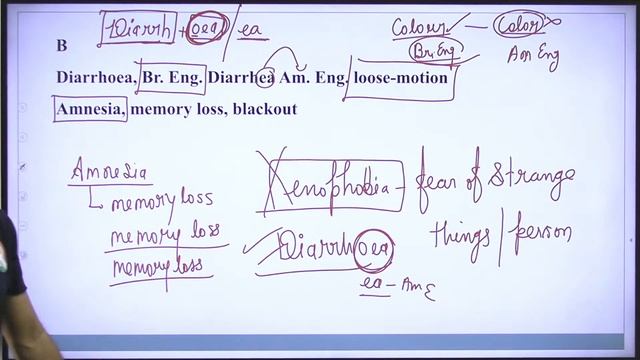 Diarrh + oea / ea
Colour ✓ — Color ×
Br. Eng
Am Eng
B
Diarrhoea, Br. Eng. Diarrhea Am. Eng. loose-motion
Amnesia, memory loss, blackout
Amnesia
memory loss
memory loss
memory loss
Xenophobia – fear of strange
things / person
Diarrhoea
ea – Am E